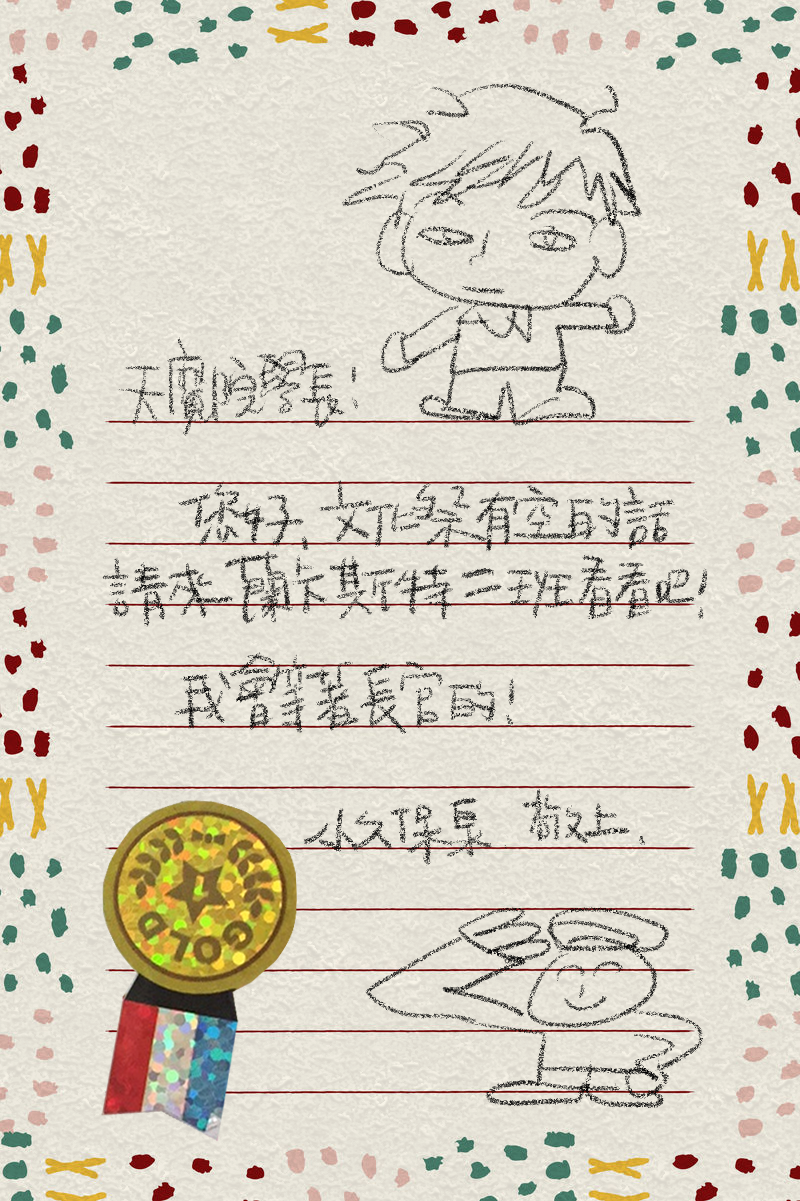 天劊院學長!
您好、文化祭有空的話
請來蘭卡斯特二班看看吧!
我會等著長官的!
小久保泉 敬上、
GOLD